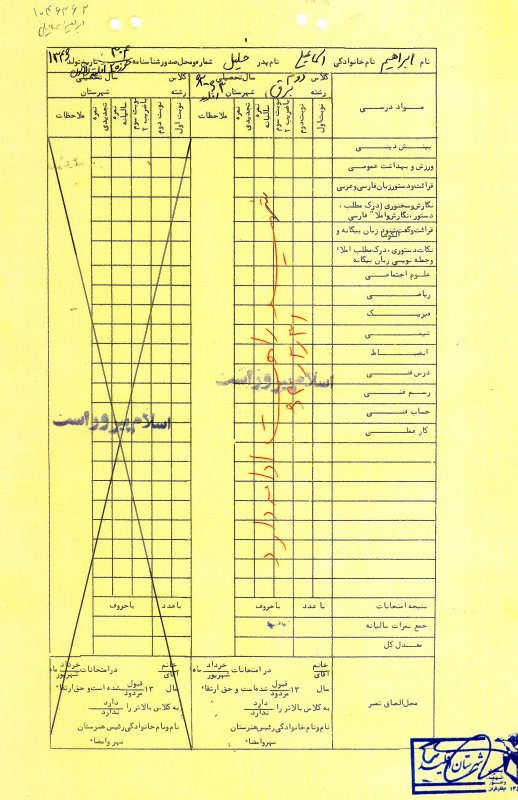 نام ابراهیم نام خانوادگی نام پدر خلیل شماره و محل صدور شناسنامه ۳۰۴ تاریخ تولد ۱۳۴۶
کلاس دوم سال تحصیلی
رشته برق شهرستان
کلاس سال تحصیلی
رشته شهرستان
مواد درسی
نوبت اول
نوبت دوم
نوبت سوم باضریب ۲
نمره سالیانه
نمره تجدیدی
ملاحظات
نوبت اول
نوبت دوم
نوبت سوم باضریب ۲
نمره سالیانه
نمره تجدیدی
ملاحظات
بینش دینی
ورزش و بهداشت عمومی
قرائت و دستور زبان فارسی و عربی
نگارش و سخنوری (درک مطلب ،
دستور ، نگارش و املاء فارسی
قرائت و گفت و شنود زبان بیگانه و
نکات دستوری ، درک مطلب املاء
و جمله نویسی زبان بیگانه
علوم اجتماعی
ریاضی
فیزیک
شیمی
انضباط
درس فنی
رسم فنی
حساب فنی
کار عملی
اسلام پیروز است
اسلام پیروز است
ادامه ندارد
با عدد
با حروف
با عدد
با حروف
نتیجه امتحانات
جمع نمرات سالیانه
معدل کل
محل الصاق تمبر
خانم
آقای
در امتحانات خرداد ماه
شهریور
سال ۱۳ قبول شده است و حق ارتقاء
مردود
به کلاس بالاتر را دارد
ندارد
نام و نام خانوادگی رئیس هنرستان
مهر و امضاء
خانم
آقای
در امتحانات خرداد ماه
شهریور
سال ۱۳ قبول شده است و حق ارتقاء
مردود
به کلاس بالاتر را دارد
ندارد
نام و نام خانوادگی رئیس هنرستان
مهر و امضاء
شهرستان